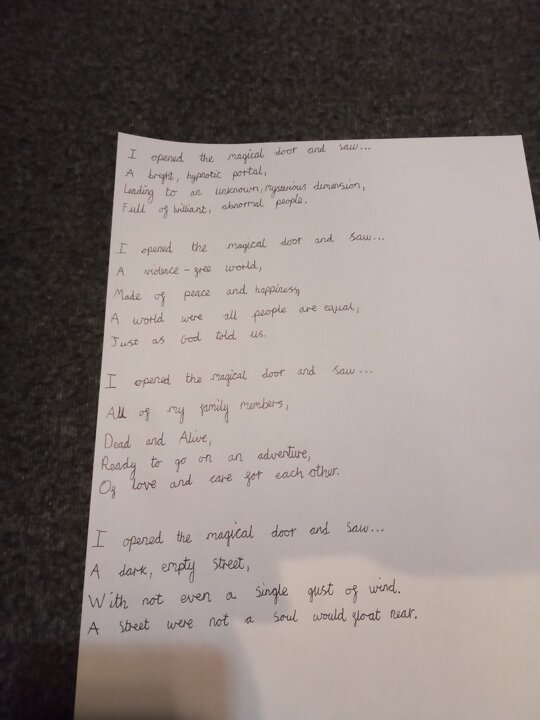 I opened the magical door and saw...
A bright, hypnotic portal,
Leading to an unknown, mysterious dimension,
Full of brilliant, abnormal people.
I opened the magical door and saw...
A violence-free world,
Made of peace and happiness,
A world were all people are equal,
Just as God told us.
I opened the magical door and saw...
All of my family members,
Dead and Alive,
Ready to go on an adventure,
Of love and care for each other.
I opened the magical door and saw...
A dark, empty street,
With not even a single gust of wind.
A street were not a soul would float near.